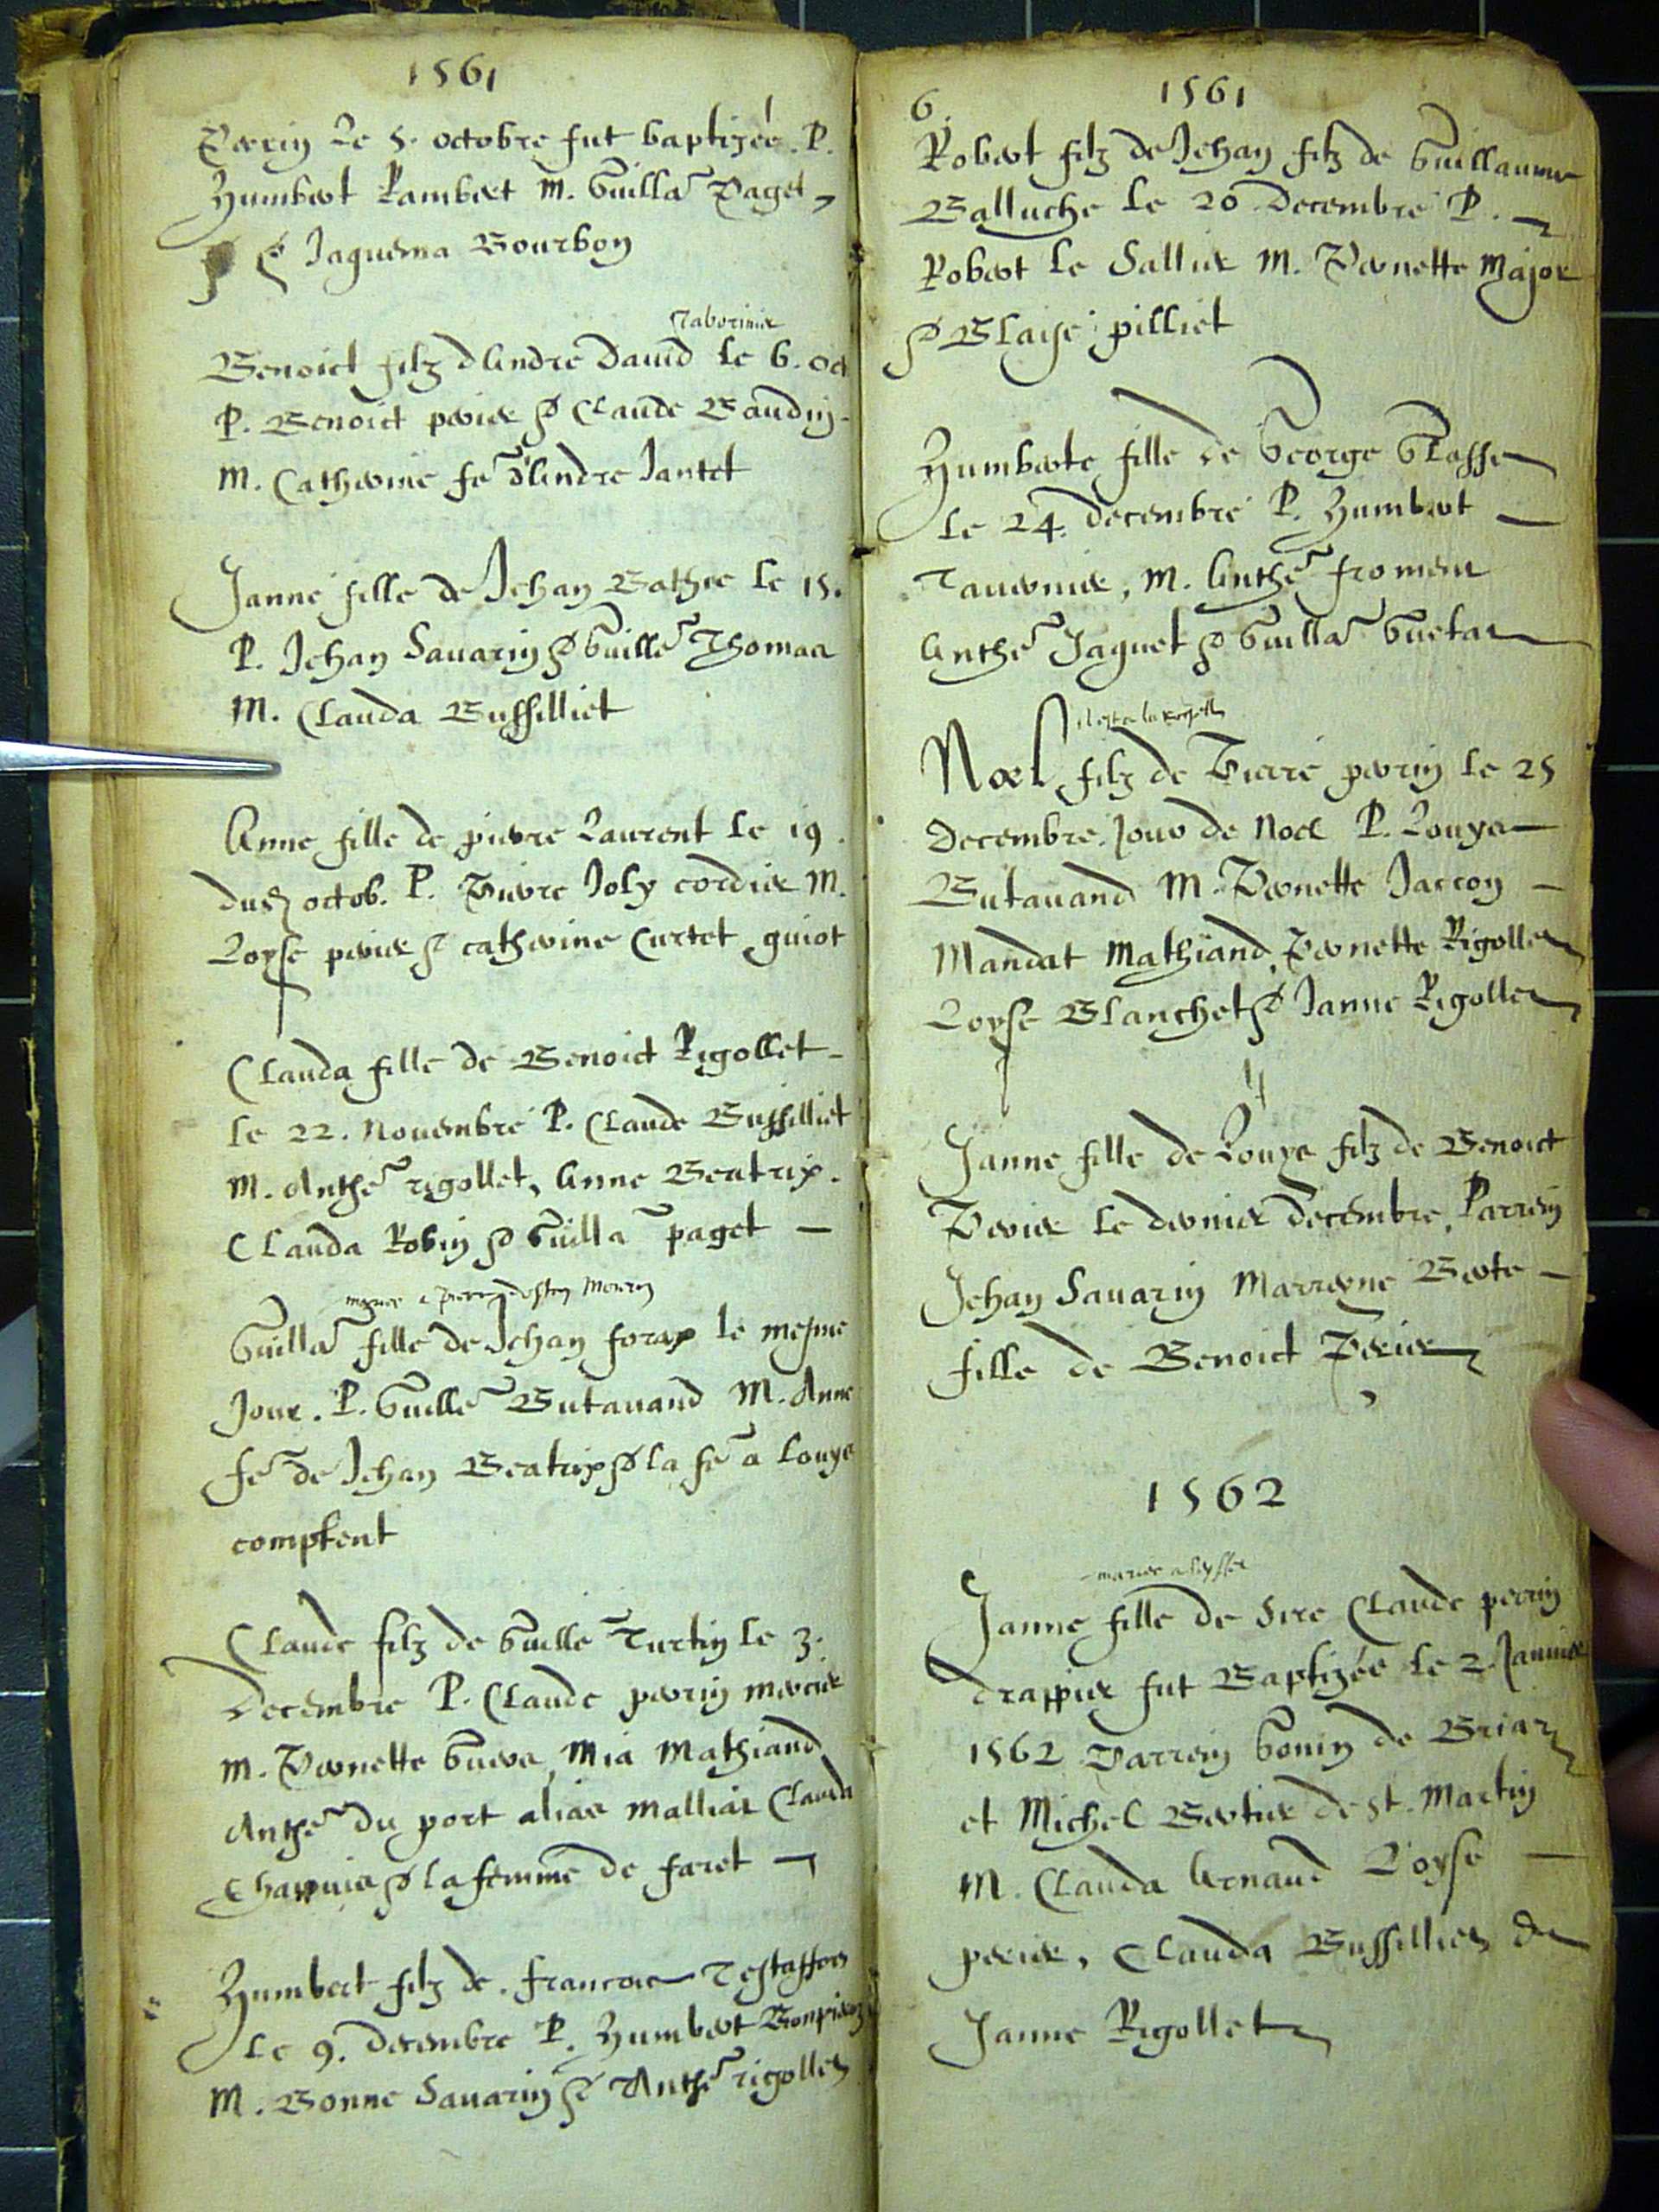 1561
Perrin Le 5. octobre fut baptizée. P.
Humbert Rambert M. Guilla Paget
& Jaquema Bourbon
Taborinier
Benoict filz d'Andre David le 6. oct
P. Benoict perier & Claude Baudin
M. Catherine fe d'Andre Jantet
Janne fille de Jehan Bathie le 15.
P. Jehan Savarin & Guille Thomas
M. Clauda Buffilliet
Anne fille de pierre Laurent le 19.
dud octob. P. Pierre Joly cordier M.
Loyse perier & catherine Curtet guiot
Clauda fille de Benoict Rigollet
le 22. Novembre P. Claude Buffilliet
M. Anthe rigollet, Anne Beatrix.
Clauda Robin & Guilla paget
Guilla fille de Jehan forax le mesme
Jour. P. Guille Butavand M. Anne
fe de Jehan Beatrix & la fe a Louys
comptent
Claude filz de Guille Turtin le 3.
Decembre P. Claude perrin mercier
M. Pernette Guers, Mia Mathiand
Anthe du port alias malliar Clauda
Chappuis & la femme de faret
Humbert filz de francois
le 9. decembre P. Humbert
M. Bonne Savarin & Anthe rigollet
6.
1561
Robert filz de Jehan filz de Guillaume
Balluche le 20. Decembre P.
Robert le Sallier M. Pernette Major
& Blaise pilliet
Humberte fille de George Glasse
le 24. decembre P. Humbert
Tavernier, M. Anthe froment
Anthe Jaquet & Guilla Guetan
Noel filz de Pierre perrin le 25
Decembre. Jour de Noel P. Louys
Butavand M. Pernette Jaccon
Mandat Mathiand, Pernette Rigollet
Loyse Blanchet & Janne Rigollet
Janne fille de Louys filz de Benoict
Perier le dernier decembre, Parrein
Jehan Savarin Marreyne Berte
fille de Benoict Perier
1562
Janne fille de Sire Claude perrin
drappier fut Baptizée le 2. Janvier
1562 Parrein Gonin de Briar
et Michel Bertier de st. Martin
M. Clauda Arnaud Loyse
perier, Clauda Buffilliet &
Janne Rigollet